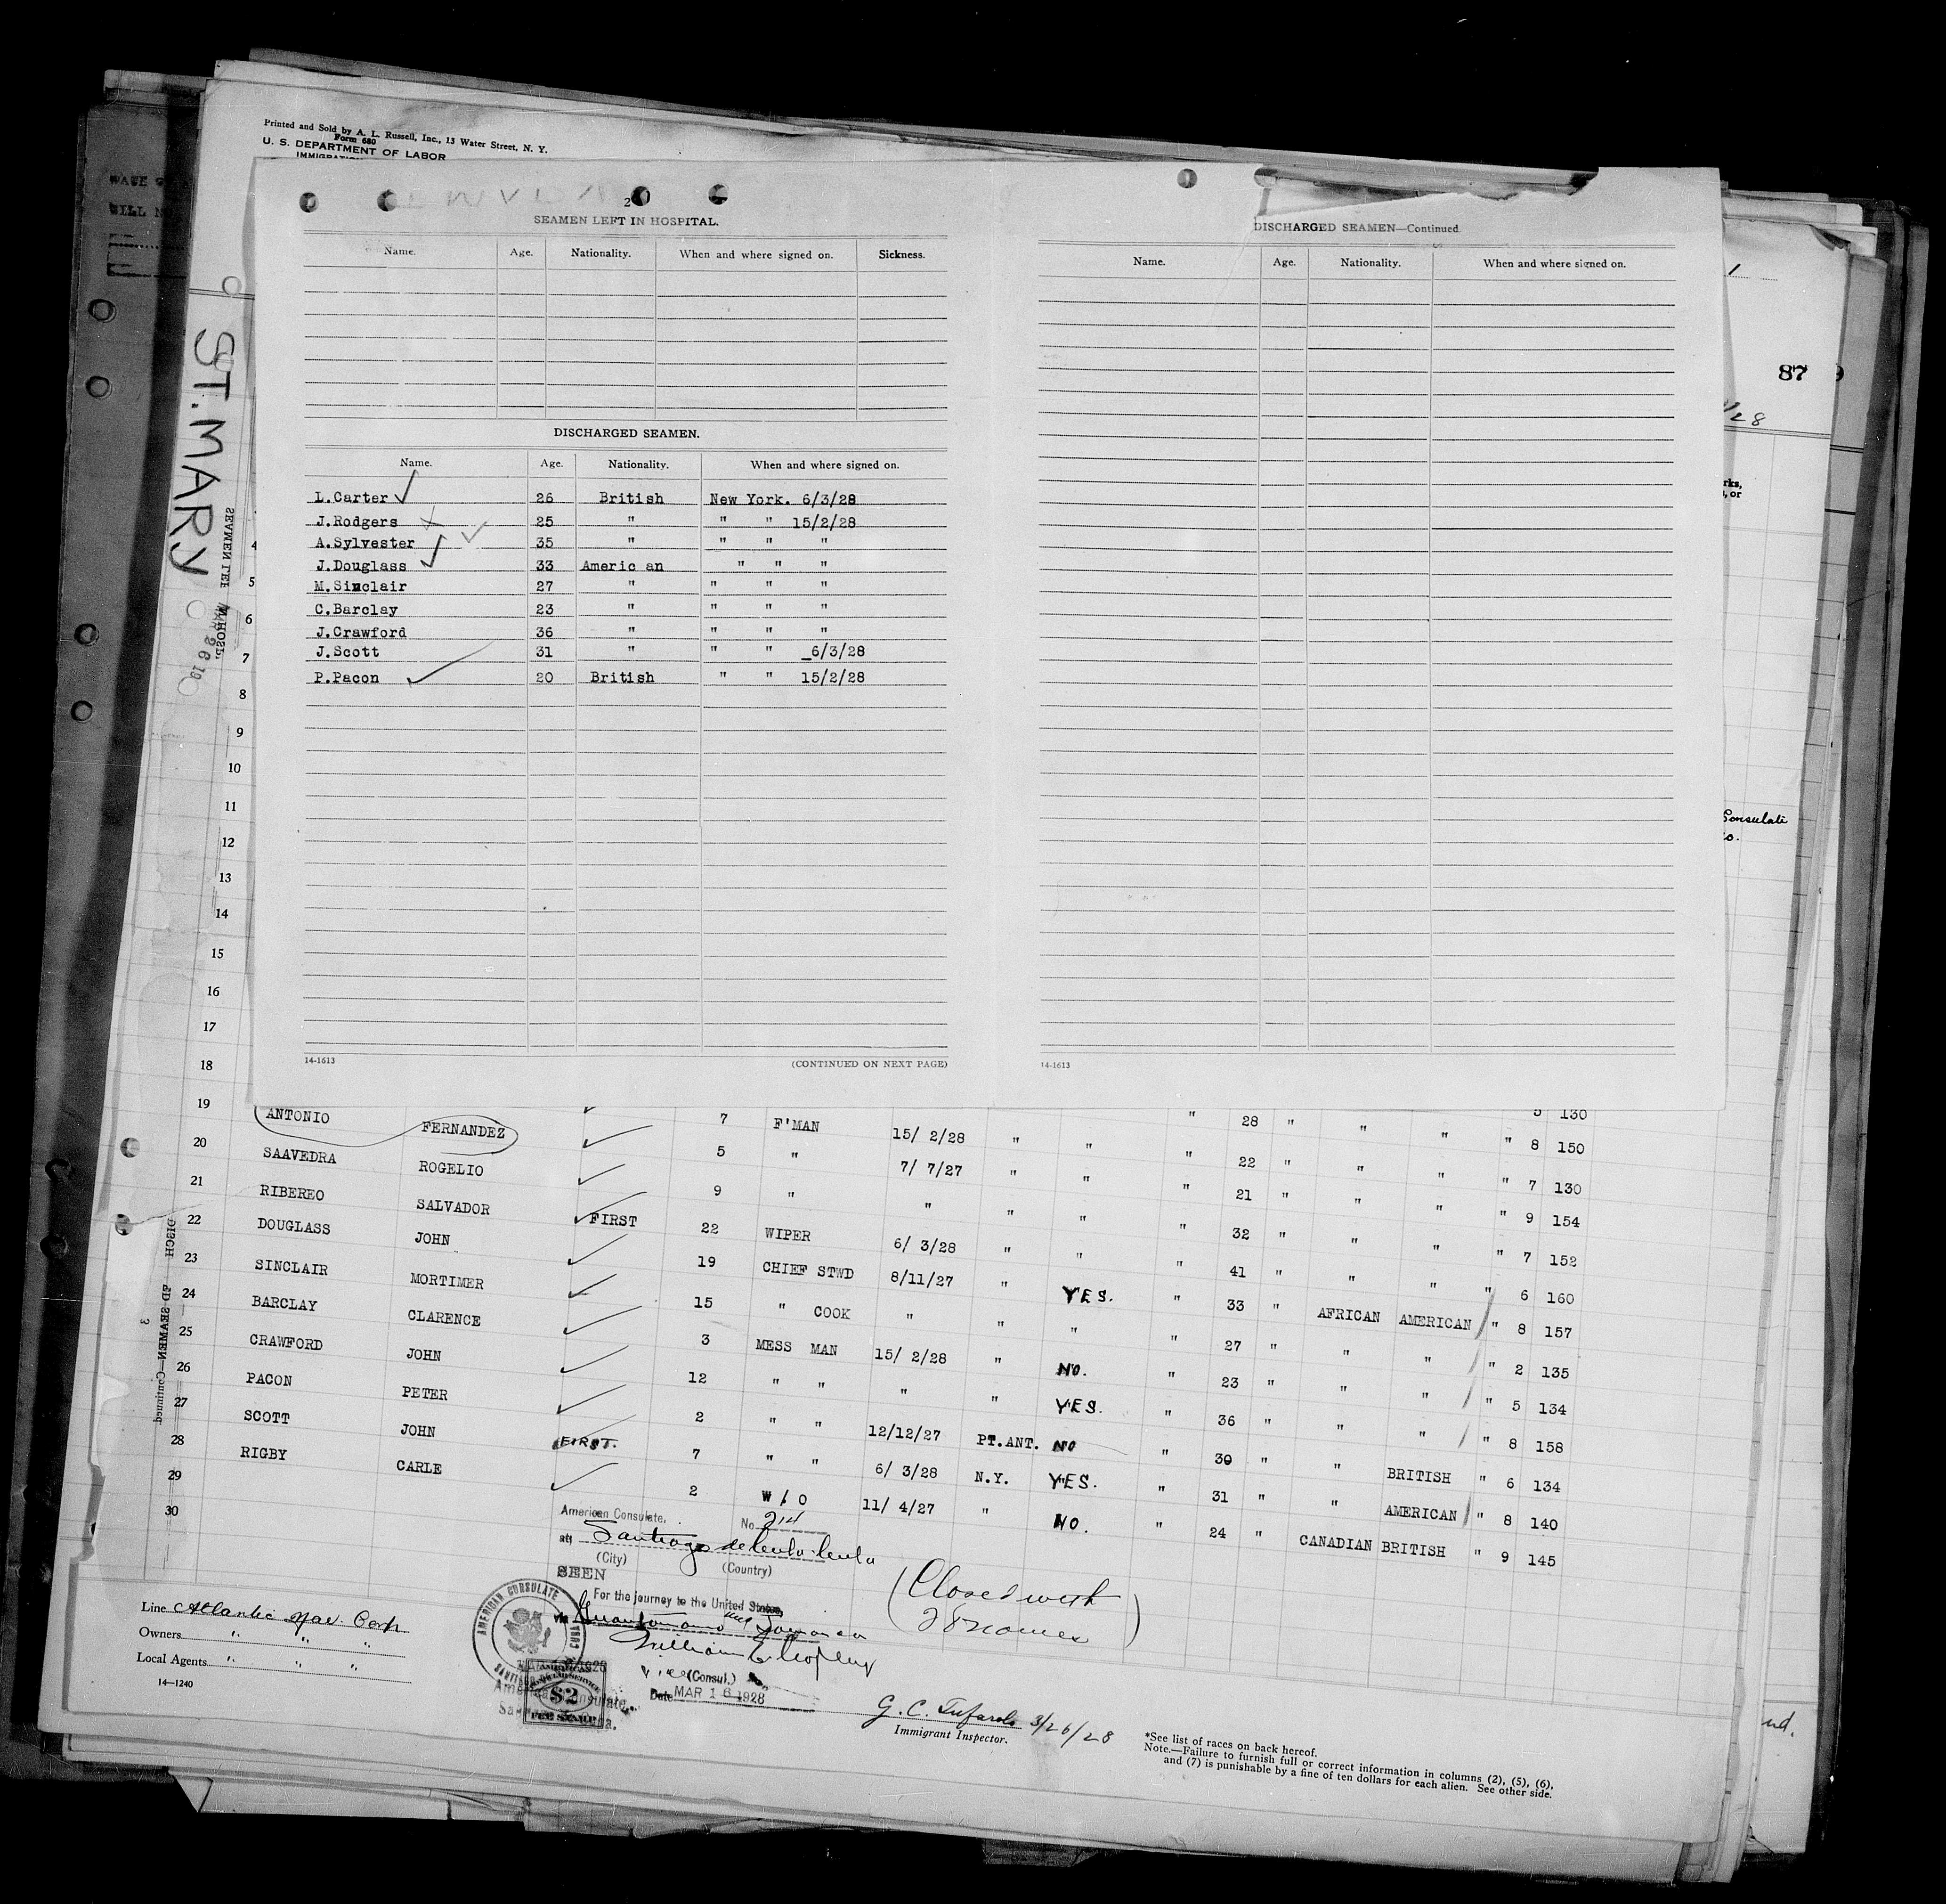 Printed and Sold by A. L. Russell, Inc., 13 Water Street, N. Y.
Form 680
U. S. DEPARTMENT OF LABOR
ST. MARY
87
2
SEAMEN LEFT IN HOSPITAL.
Name. Age. Nationality. When and where signed on. Sickness.
DISCHARGED SEAMEN.
Name. Age. Nationality. When and where signed on.
L.Carter 26 British New York. 6/3/28
J.Rodgers 25 " " " 15/2/28
A.Sylvester 35 " " " "
J.Douglass 33 Americ an " " "
M.Sinclair 27 " " " "
C.Barclay 23 " " " "
J.Crawford 36 " " " "
J.Scott 31 " " " 6/3/28
P.Pacon 20 British " " 15/2/28
14-1613 (CONTINUED ON NEXT PAGE)
DISCHARGED SEAMEN—Continued
Name. Age. Nationality. When and where signed on.
14-1613
4
5
6
7
8
9
10
11
12
13
14
15
16
17
18
19 5 130
ANTONIO FERNANDEZ 7 F'MAN 15/ 2/28 " " " 28 " " " " 8 150
20 SAAVEDRA ROGELIO 5 " 7/ 7/27 " " " 22 " " " " 7 130
21 RIBEREO SALVADOR 9 " " " " " 21 " " " " 9 154
22 DOUGLASS JOHN FIRST 22 WIPER 6/ 3/28 " " " 32 " " " " 7 152
23 SINCLAIR MORTIMER 19 CHIEF STWD 8/11/27 " YES. " 41 " " " " 6 160
24 BARCLAY CLARENCE 15 " COOK " " " " 33 " AFRICAN AMERICAN " 8 157
25 CRAWFORD JOHN 3 MESS MAN 15/ 2/28 " NO. " 27 " " " " 2 135
26 PACON PETER 12 " " " " YES. " 23 " " " " 5 134
27 SCOTT JOHN 2 " " 12/12/27 PT.ANT. NO " 36 " " " " 8 158
28 RIGBY CARLE FIRST. 7 " " 6/ 3/28 N.Y. YES. " 30 " " BRITISH " 6 134
29 2 W/O 11/ 4/27 " NO. " 31 " " AMERICAN " 8 140
30 " 24 " CANADIAN BRITISH " 9 145
American Consulate, No. 214
at Santiago de Cuba Cuba
(City) (Country)
SEEN
For the journey to the United States,
via Guantanamo and Jamaica
Vice (Consul.)
Date MAR 16 1928
AMERICAN CONSULATE
$2
FEE STAMP
(Closed with
28 names)
Line Atlantic Nav. Corp.
Owners " " "
Local Agents " " "
14—1240
3/26/28
Immigrant Inspector.
*See list of races on back hereof.
Note.—Failure to furnish full or correct information in columns (2), (5), (6),
and (7) is punishable by a fine of ten dollars for each alien. See other side.